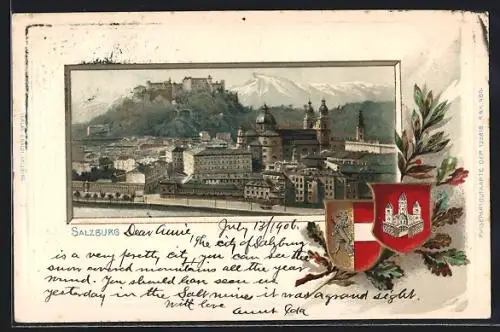 SALZBURG Dear Annie, July 13/1906.
The city of Salzburg
is a very pretty city, you can see the
snow around mountains all the year
round. You should have seen us
yesterday in the Salt mines it was a grand sight.
With love
Aunt